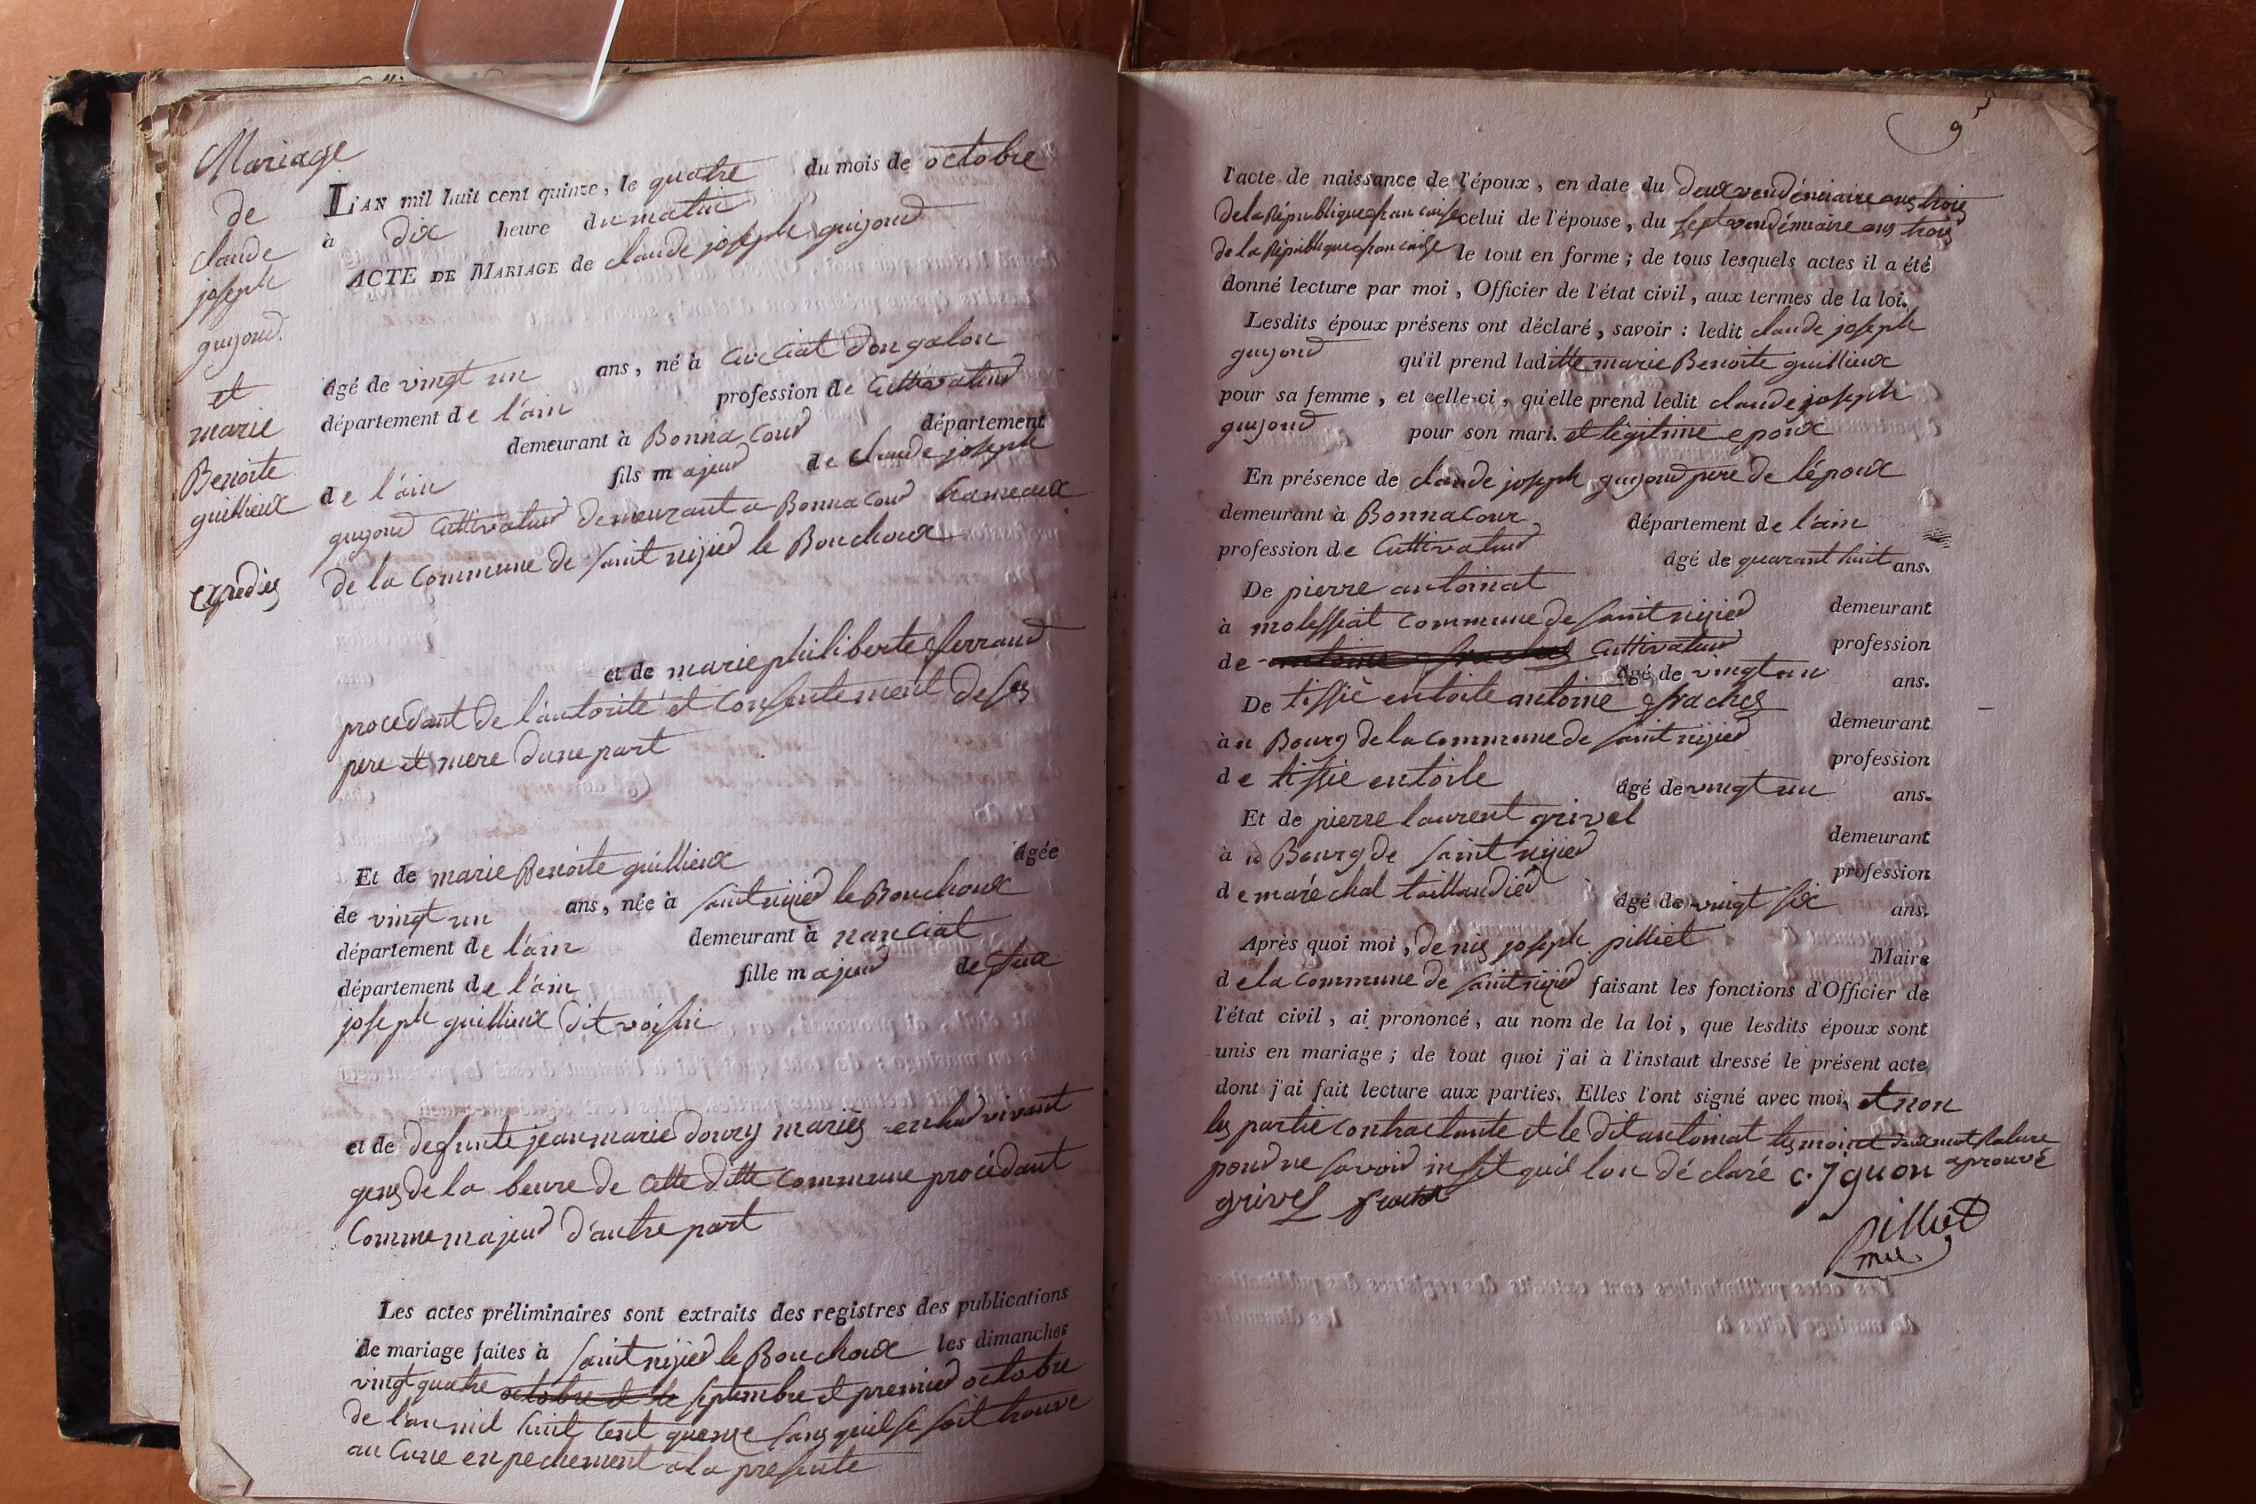 Mariage
de
claude
joseph
guyond.
et
marie
Benoite
guillieux
expediés
L'AN mil huit cent quinze, le quatre du mois de octobre
à dix heure du matin
ACTE DE MARIAGE de claude joseph guyond
âgé de vingt un ans, né à Curciat dongalon
département de l'ain profession de Cultivateur
demeurant à Bonna Cour département
de l'ain fils majeur de claude joseph
guyond Cultivateur demeurant a Bonna Cour hameaux
de la Commune de Saint nizied le Bouchoux
et de marie philiberte ferrand
procedant de l'autorité et Consentement de ses
pere et mere dune part
Et de marie Benoite guillieux âgée
de vingt un ans, née à Saint nizied le Bouchoux
département de l'ain demeurant à nanciat
département de l'ain fille majeur de fua
joseph guillieux dit voisin
et de defunte jeanmarie douvry mariés enleur vivant
gens de la beure de Cette ditte Commune procédant
Comme majeur d'autre part
Les actes préliminaires sont extraits des registres des publications
de mariage faites à Saint nizied le Bouchoux les dimanches
vingt quatre octobre et le septembre et premied octobre
de l'an mil huit cent quinze sans quil se soit trouve
au Cune enpechement a la presente
9
l'acte de naissance de l'époux, en date du deux vendémiaire ans trois
de la République francaise celui de l'épouse, du sept vendémiaire ans trois
de la République francaise le tout en forme; de tous lesquels actes il a été
donné lecture par moi, Officier de l'état civil, aux termes de la loi.
Lesdits époux présens ont déclaré, savoir: ledit claude joseph
guyond qu'il prend laditte marie Benoite guillieux
pour sa femme, et celle-ci, qu'elle prend ledit claude joseph
guyond pour son mari. et légitime epoux
En présence de claude joseph guyond pere de l'époux
demeurant à Bonna Cour département de l'ain
profession de Cultivateur âgé de quarant huit ans.
De pierre antoinat demeurant
à molessiat Commune de Saint nizied profession
de antoine fraches Cultivateur âgé de vingt un ans.
De tissié entoile antoine fraches demeurant
àu Bourg de la commune de Saint nizied profession
de tissié entoile âgé de vingt un ans.
Et de pierre laurent grivel demeurant
àu Bourg de Saint nizied profession
de maréchal taillandied âgé de vingt six ans.
Après quoi moi, denis joseph pilliet Maire
de la Commune de Saint nizied faisant les fonctions d'Officier de
l'état civil, ai prononcé, au nom de la loi, que lesdits époux sont
unis en mariage; de tout quoi j'ai à l'instaut dressé le présent acte
dont j'ai fait lecture aux parties. Elles l'ont signé avec moi, et non
les partie Contractante et le dit antoinat temoint
pour ne savoir quil lon déclaré c. j guon aprouvé
grivel
Pilliet